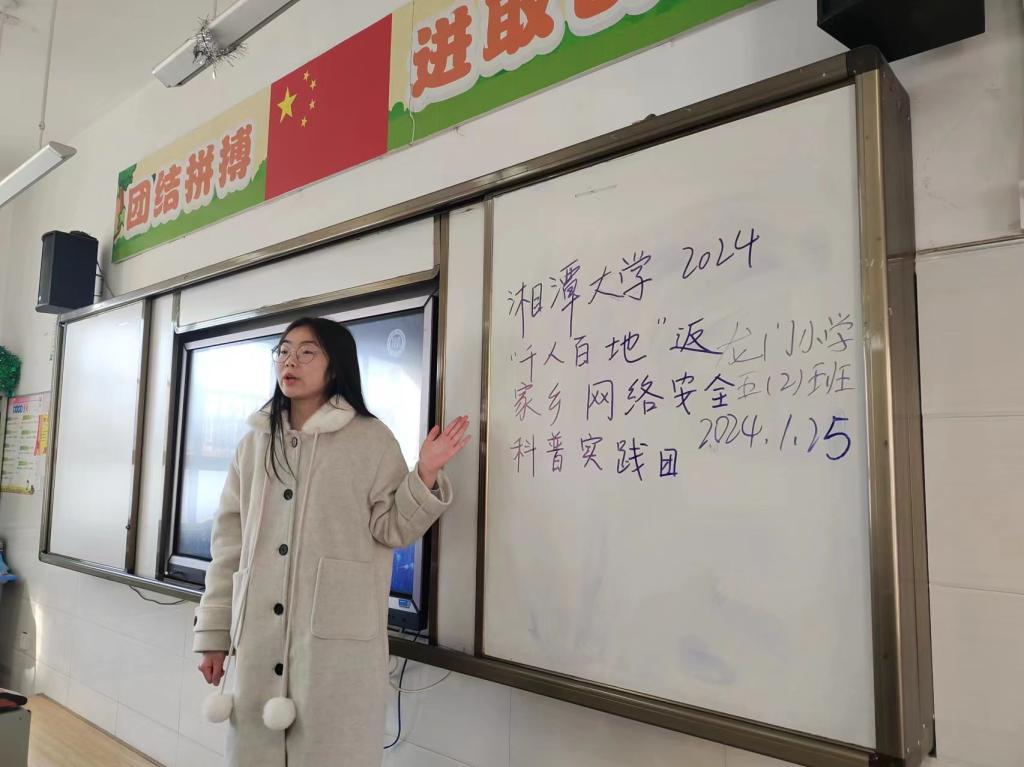 团结拼搏
进取
湘潭大学 2024
"千人百地"返
家乡 网络安全
科普实践团
龙门小学
五(2)班
2024.1.25